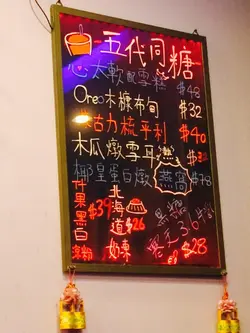 五代同糖
心太軟配雪糕 $48
Oreo木糠布甸 $32
朱古力梳乎利 $40
木瓜燉雪耳 熱
椰皇蛋白燉燕窩 $78
芒果黑白涼粉 $39
北海道奶凍 $26
黑糖寒天
$28